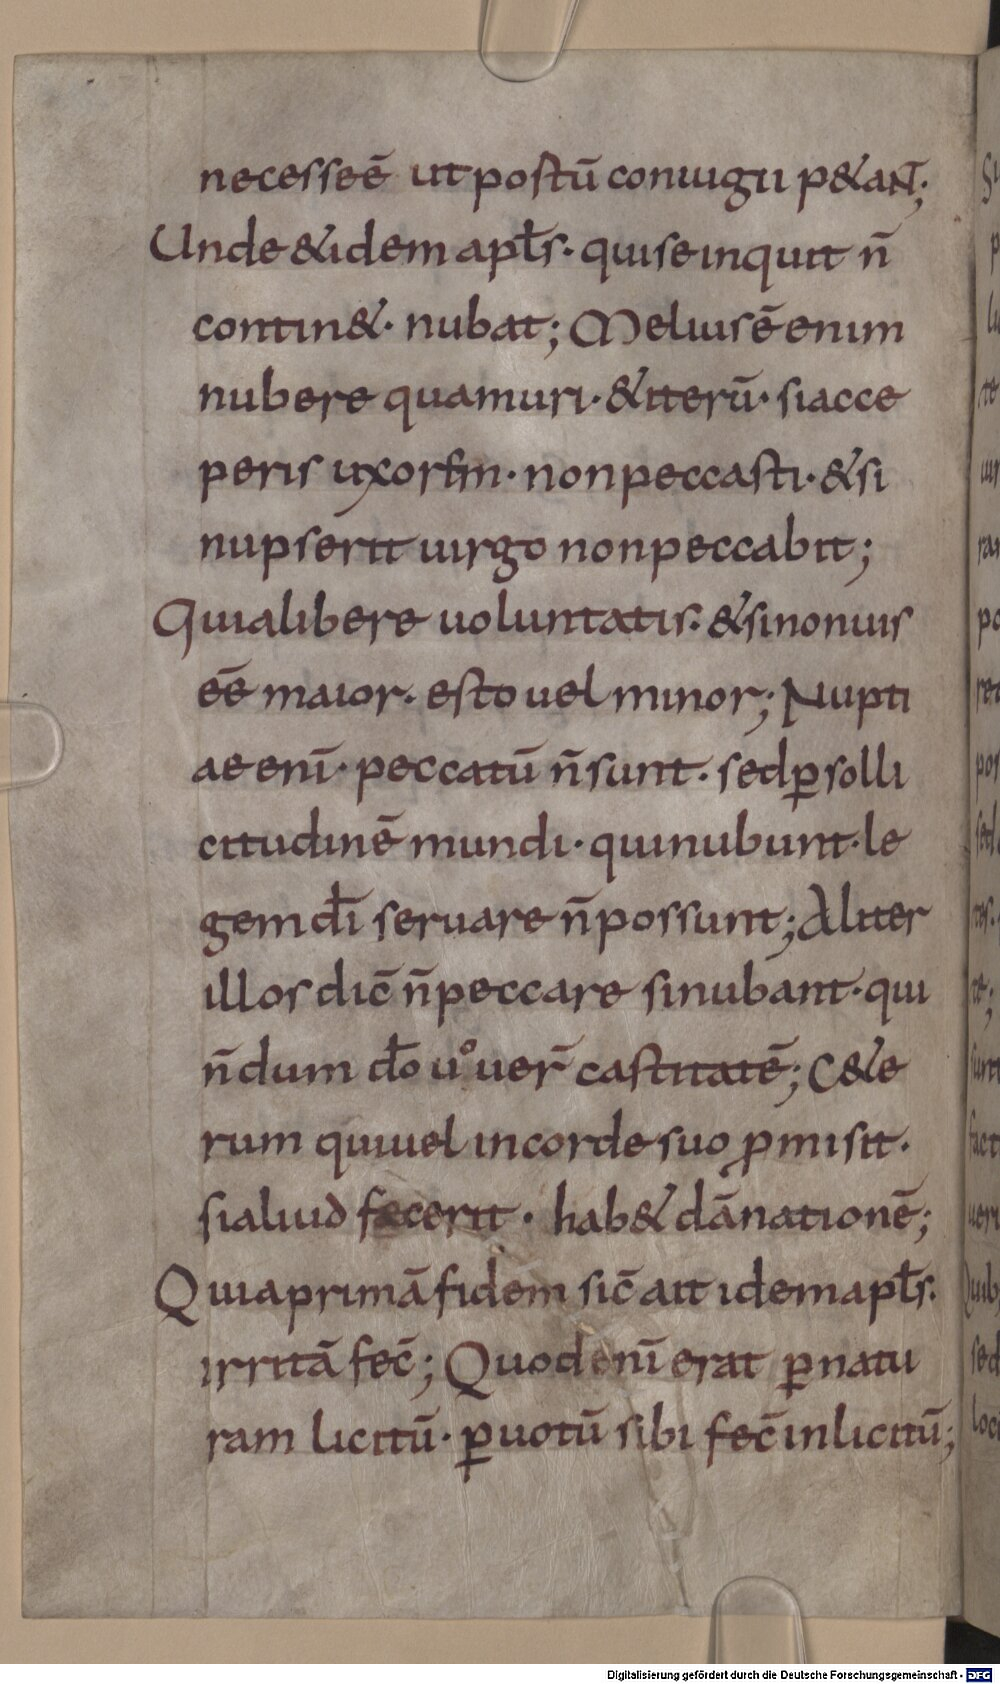 necesse eē ut postū coniugii p&aNT;
Unde &idem aptŝ· qui se inquit n̄
contin&· nubat; Melius ē enim
nubere quam uri· &iterū· si acce
peris uxorem· non peccasti· &si
nupserit uirgo non peccabit;
Quia libere uoluntatis· &si non uis
eē maior· esto uel minor; Nupti
ae enī· peccatū n̄ sunt· sed ꝑ solli
citudinē mundi· qui nubunt· le
gem dī seruare n̄ possunt; Aliter
illos dic̄ n̄ peccare si nubant· qui
n̄dum dō uouer̄ castitatē; C&e
rum qui uel in corde suo ꝓmisit·
si aliud fecerit· hab& dānationē;
Quia primā fidem sic̄ ait idem aptŝ·
irritā fec̄; Quod enī erat ꝑ natu
ram licitū· ꝑ uotū sibi fec̄ inlicitū;
Digitalisierung gefördert durch die Deutsche Forschungsgemeinschaft - DFG